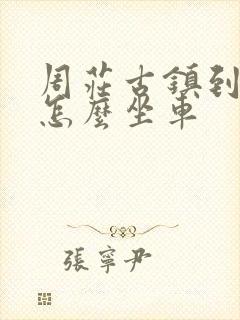 周莊古鎮到
怎麼坐車
張寧尹